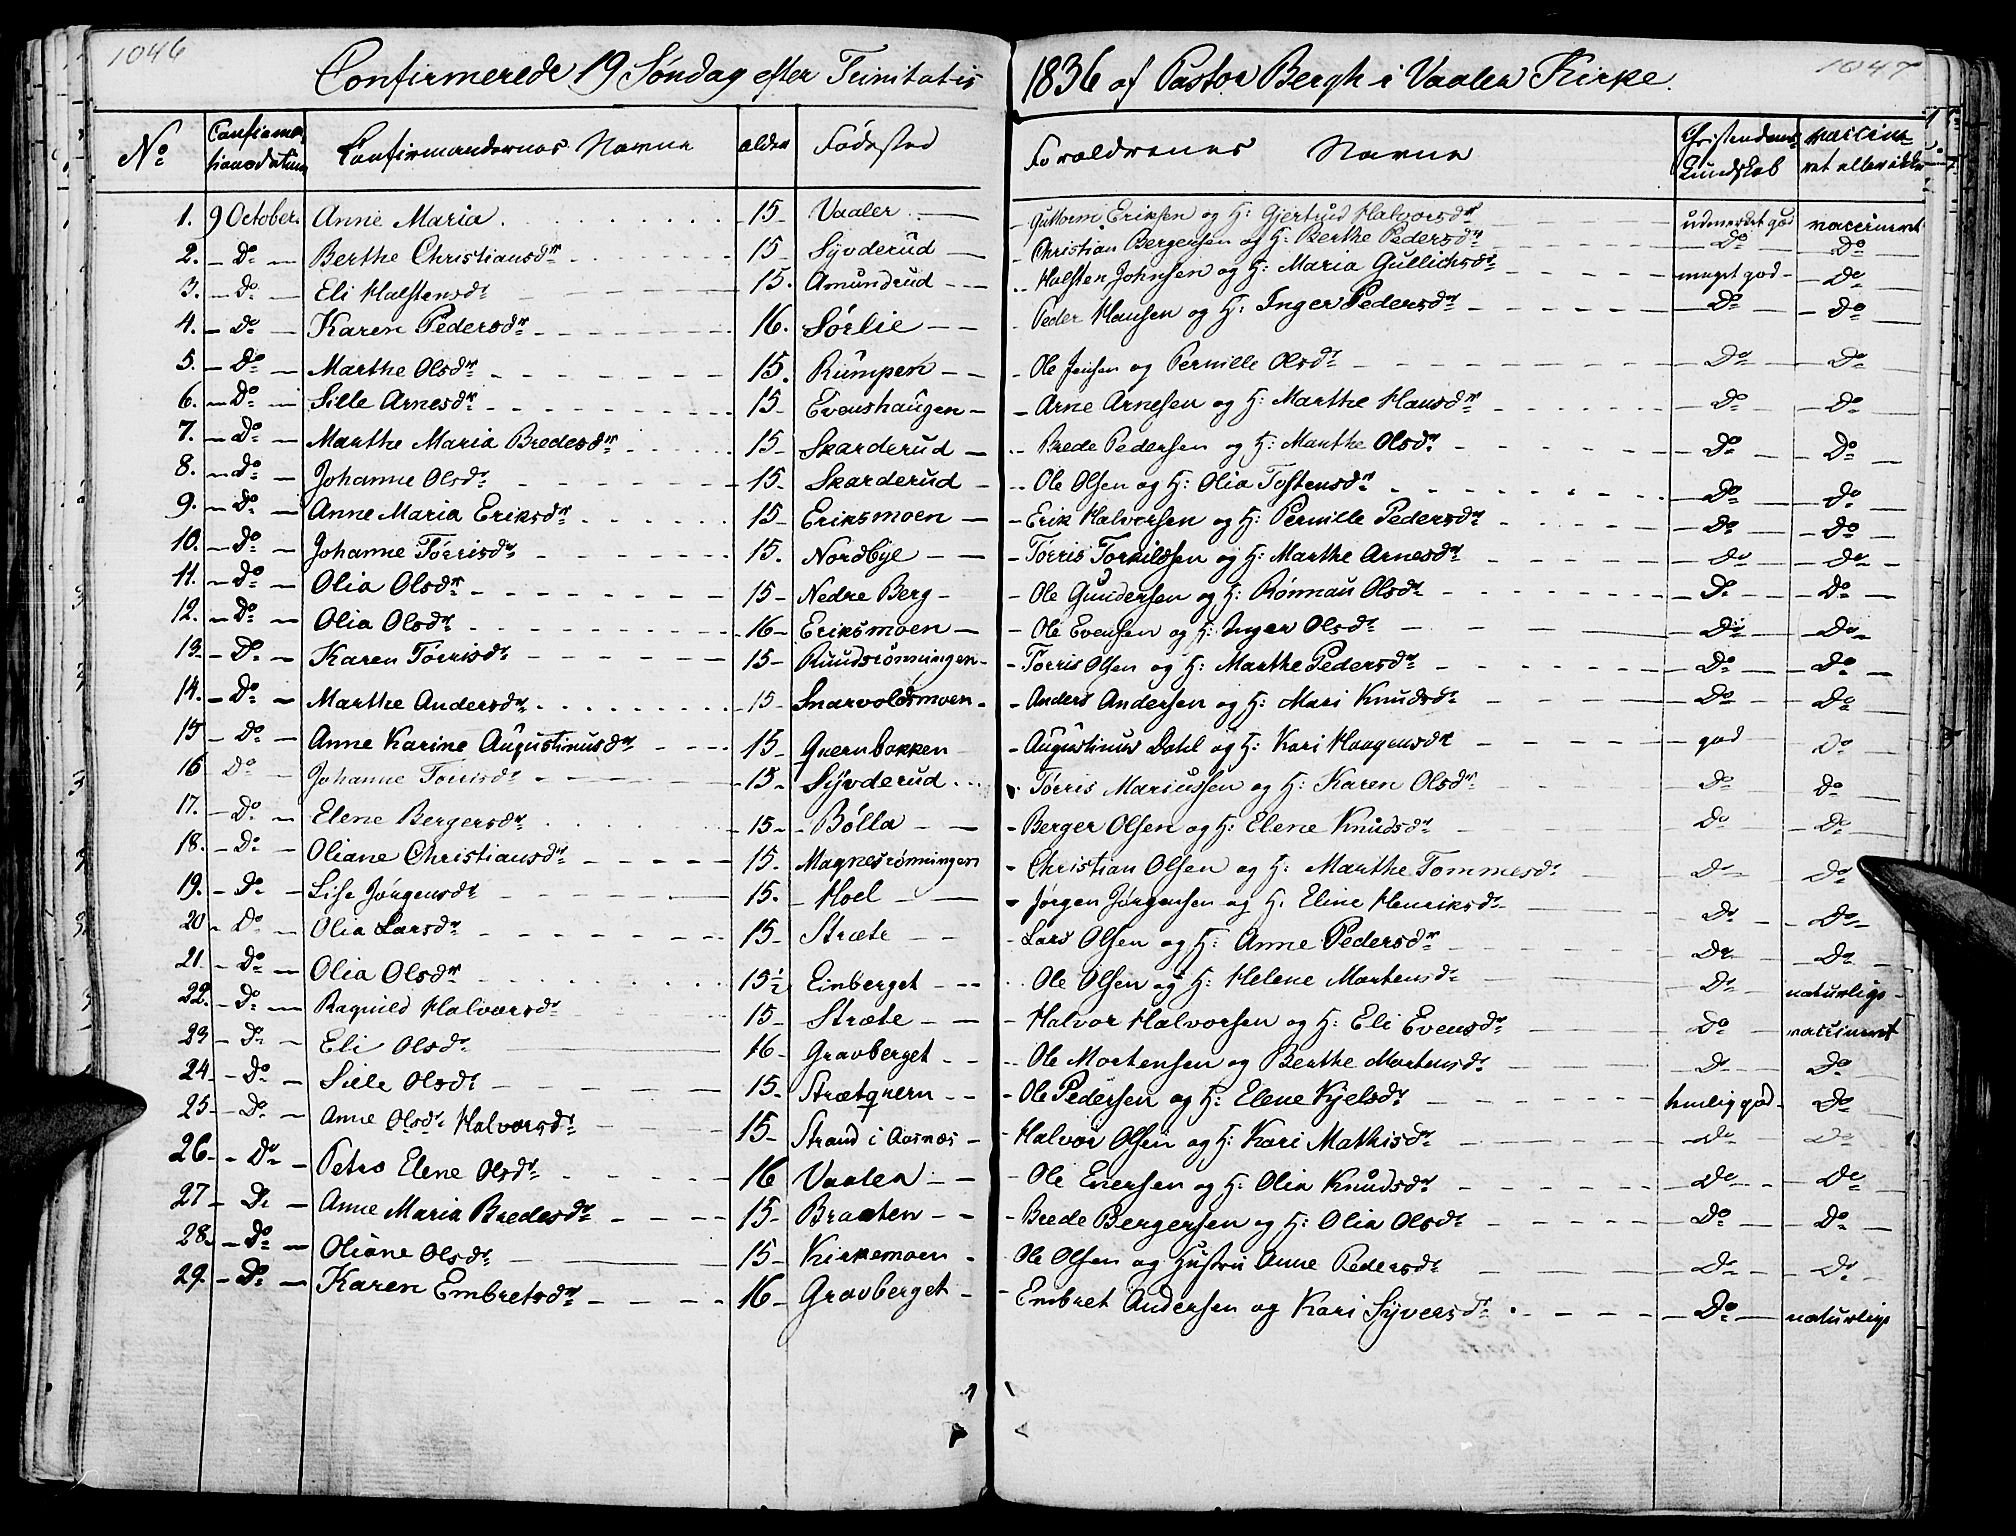 1046
1047
Confirmerede 19 Søndag efter Trinitatis 1836 af Pastor Bergh i Vaaler Kirke.
No Confirmationsdatum Confirmandernes Navne alder Fødested Forældrenes Navne Christendoms Kundskab vaccineret eller ikke
1. 9 October. Anne Maria 15 Vaaler Guttorm Eriksen og H: Gjertrud Halvorsdr udmerket god vaccineret
2. Do Berthe Christiansdr 15 Syvderud Christian Bergersen og H: Berthe Pedersdr Do Do
3. Do Eli Halstensdr 15. Amundrud Halsten Johnsen og H: Maria Gullichsdr meget god Do
4. Do Karen Pedersdr 16. Sørlie Peder Hansen og H: Inger Pedersdr Do Do
5. Do Marthe Olsdr 15. Rumpen Ole Jensen og Pernille Olsdr Do Do
6. Do Sille Arnesdr 15 Evenshaugen Arne Arnesen og H: Marthe Hansdr Do Do
7. Do Marthe Maria Bredesdr 15 Skarderud Brede Pedersen og H: Marthe Olsdr Do Do
8. Do Johanne Olsdr 15 Skarderud Ole Olsen og H: Olia Tostensdr Do Do
9. Do Anne Maria Eriksdr 15 Eriksmoen Erik Halvorsen og H: Pernille Pedersdr Do Do
10. Do Johanne Tørrisdr 15. Nordbye Tørris Torkildsen og H: Marthe Arnesdr Do Do
11. Do Olia Olsdr 15 Nedre Berg Ole Gundersen og H: Rønnau Olsdr Do Do
12. Do Olia Olsdr 16 Eriksmoen Ole Evensen og H: Inger Olsdr Do Do
13 Do Karen Tørrisdr 15 Ruudsrønningen Tørris Olsen og H: Marthe Pedersdr Do Do
14. Do Marthe Andersdr 15 Snarvoldsmoen Anders Andersen og H: Mari Knudsdr Do Do
15 Do Anne Karine Augustinusdr 15 Quernbakken Augustinus Dahl og H: Kari Haagensdr god Do
16 Do Johanne Tørrisdr 15 Syvderud Tørris Mariussen og H: Karen Olsdr Do Do
17. Do Elene Bergersdr 15 Bølla Berger Olsen og H: Elene Knudsdr Do Do
18. Do Oliane Christiansdr 15. Magnesrønningen Christian Olsen og H: Marthe Tommesdr Do Do
19. Do Lise Jørgensdr 15. Hoel Jørgen Jørgensen og H. Eline Henriksdr Do Do
20 Do Olia Larsdr 15 Stræte Lars Olsen og H: Anne Pedersdr Do Do
21. Do Olia Olsdr 15½ Einberget Ole Olsen og H: Helene Mortensdr Do naturlige
22. Do Ragnild Halvorsdr 15 Stræte Halvor Halvorsen og H: Eli Evensdr Do vaccineret
23 Do Eli Olsdr 16 Gravberget Ole Mortensen og Berthe Mortensdr Do Do
24 Do Sille Olsdr 15 Strætquern Ole Pedersen og H: Elene Kjelsdr temlig god Do
25 Do Anne Olsdr Halvorsdr 15 Strand i Aasnæs Halvor Olsen og H: Kari Mathisdr Do Do
26 Do Petro Elene Olsdr 16 Vaaler Ole Eversen og H: Olia Knudsdr Do Do
27 Do Anne Maria Bredesdr 15 Braaten Brede Bergersen og H: Olia Olsdr Do Do
28. Do Oliane Olsdr 15 Kirkemoen Ole Olsen og Hustru Anne Pedersdr Do Do
29. Do Karen Embretsdr 16 Gravberget Embret Andersen og Kari Syversdr Do naturlige